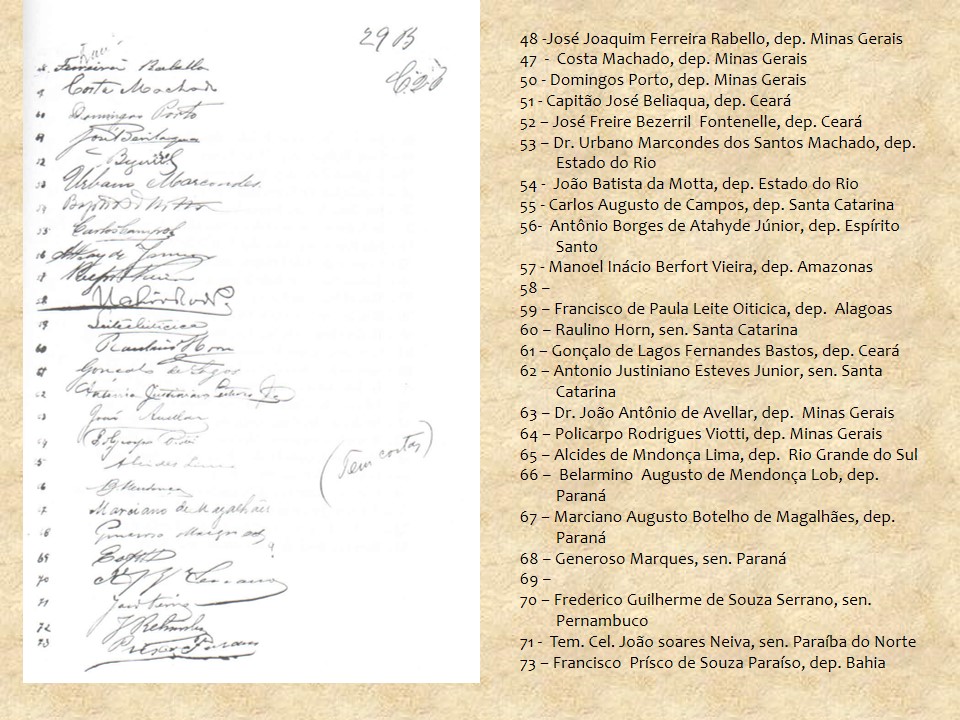 29 B
Ferreira Rabello
Costa Machado
Domingos Porto
José Bevilaqua
52 Bezerril
53 Urbano Marcondes
54 Baptista da Motta
55 Carlos Campos
56 Athayde Junior
57
58
59 Leite Oiticica
60 Raulino Horn
61 Gonçalo de Lagos
62 Antonio Justiniano Esteves Jr
63 João Avellar
64 Polycarpo Viotti
65 Alcides Lima
(Tem cortas)
66 B Mendonça
67 Marciano de Magalhães
68 Generoso Marques
69
70 Serrano
71 João Neiva
72
73 Prisco Paraiso
48 -José Joaquim Ferreira Rabello, dep. Minas Gerais
47 - Costa Machado, dep. Minas Gerais
50 - Domingos Porto, dep. Minas Gerais
51 - Capitão José Beliaqua, dep. Ceará
52 – José Freire Bezerril Fontenelle, dep. Ceará
53 – Dr. Urbano Marcondes dos Santos Machado, dep.
Estado do Rio
54 - João Batista da Motta, dep. Estado do Rio
55 - Carlos Augusto de Campos, dep. Santa Catarina
56- Antônio Borges de Atahyde Júnior, dep. Espírito
Santo
57 - Manoel Inácio Berfort Vieira, dep. Amazonas
58 –
59 – Francisco de Paula Leite Oiticica, dep. Alagoas
60 – Raulino Horn, sen. Santa Catarina
61 – Gonçalo de Lagos Fernandes Bastos, dep. Ceará
62 – Antonio Justiniano Esteves Junior, sen. Santa
Catarina
63 – Dr. João Antônio de Avellar, dep. Minas Gerais
64 – Policarpo Rodrigues Viotti, dep. Minas Gerais
65 – Alcides de Mndonça Lima, dep. Rio Grande do Sul
66 – Belarmino Augusto de Mendonça Lob, dep.
Paraná
67 – Marciano Augusto Botelho de Magalhães, dep.
Paraná
68 – Generoso Marques, sen. Paraná
69 –
70 – Frederico Guilherme de Souza Serrano, sen.
Pernambuco
71 - Tem. Cel. João soares Neiva, sen. Paraíba do Norte
73 – Francisco Prísco de Souza Paraíso, dep. Bahia